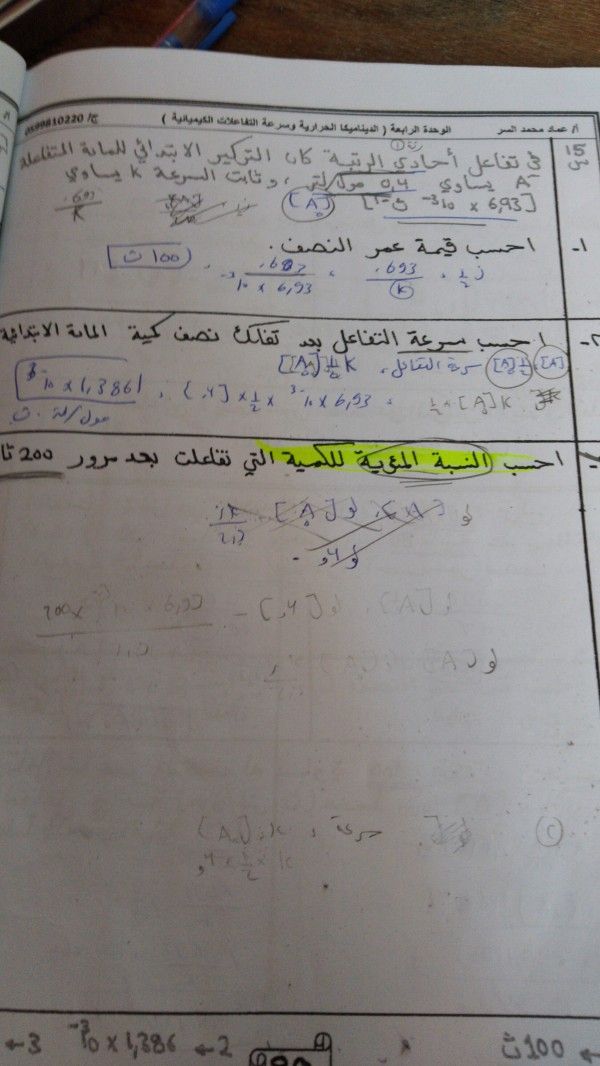 أ/ عماد محمد السر الوحدة الرابعة ( الديناميكا الحرارية وسرعة التفاعلات الكيميائية ) ج/ 0599810220
س15 في تفاعل أحادي الرتبة كان التركيز الابتدائي للمادة المتفاعلة
A يساوي 0,4 مول/لتر ، وثابت السرعة K يساوي
[6,93 × 10⁻³ ث⁻¹] [A₀] .693 / K
1- احسب قيمة عمر النصف.
ز ½ = .693 / K = .693 / 6,93 × 10⁻³ = 100 ث
2- احسب سرعة التفاعل بعد تفكك نصف كمية المادة الابتدائية
سرعة التفاعل = K ½ [A₀] [A] = ½ [A₀]
K [A₀] × ½ = 6,93 × 10⁻³ × ½ × [,4] = 1,386 × 10⁻³
مول/لتر . ث
احسب النسبة المئوية للكمية التي تفاعلت بعد مرور 200 ثا
لو [A] = لو [A₀] -
لو ,4 -
لو [A] = لو [,4] - 6,93 × 10⁻³ × 200
لو [A]
2 سرعة = K [A₀]
K × ½ × ,4
← 100 ث 2 ← 1,386 × 10⁻³ 3 ←